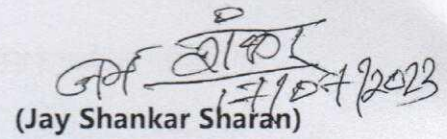 जय शंकर
17/07/2023
(Jay Shankar Sharan)